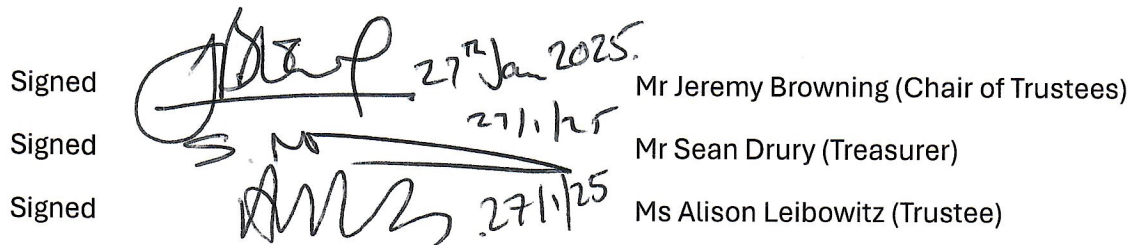 Signed 27th Jan 2025. Mr Jeremy Browning (Chair of Trustees)
Signed 27/1/25 Mr Sean Drury (Treasurer)
Signed 27/1/25 Ms Alison Leibowitz (Trustee)